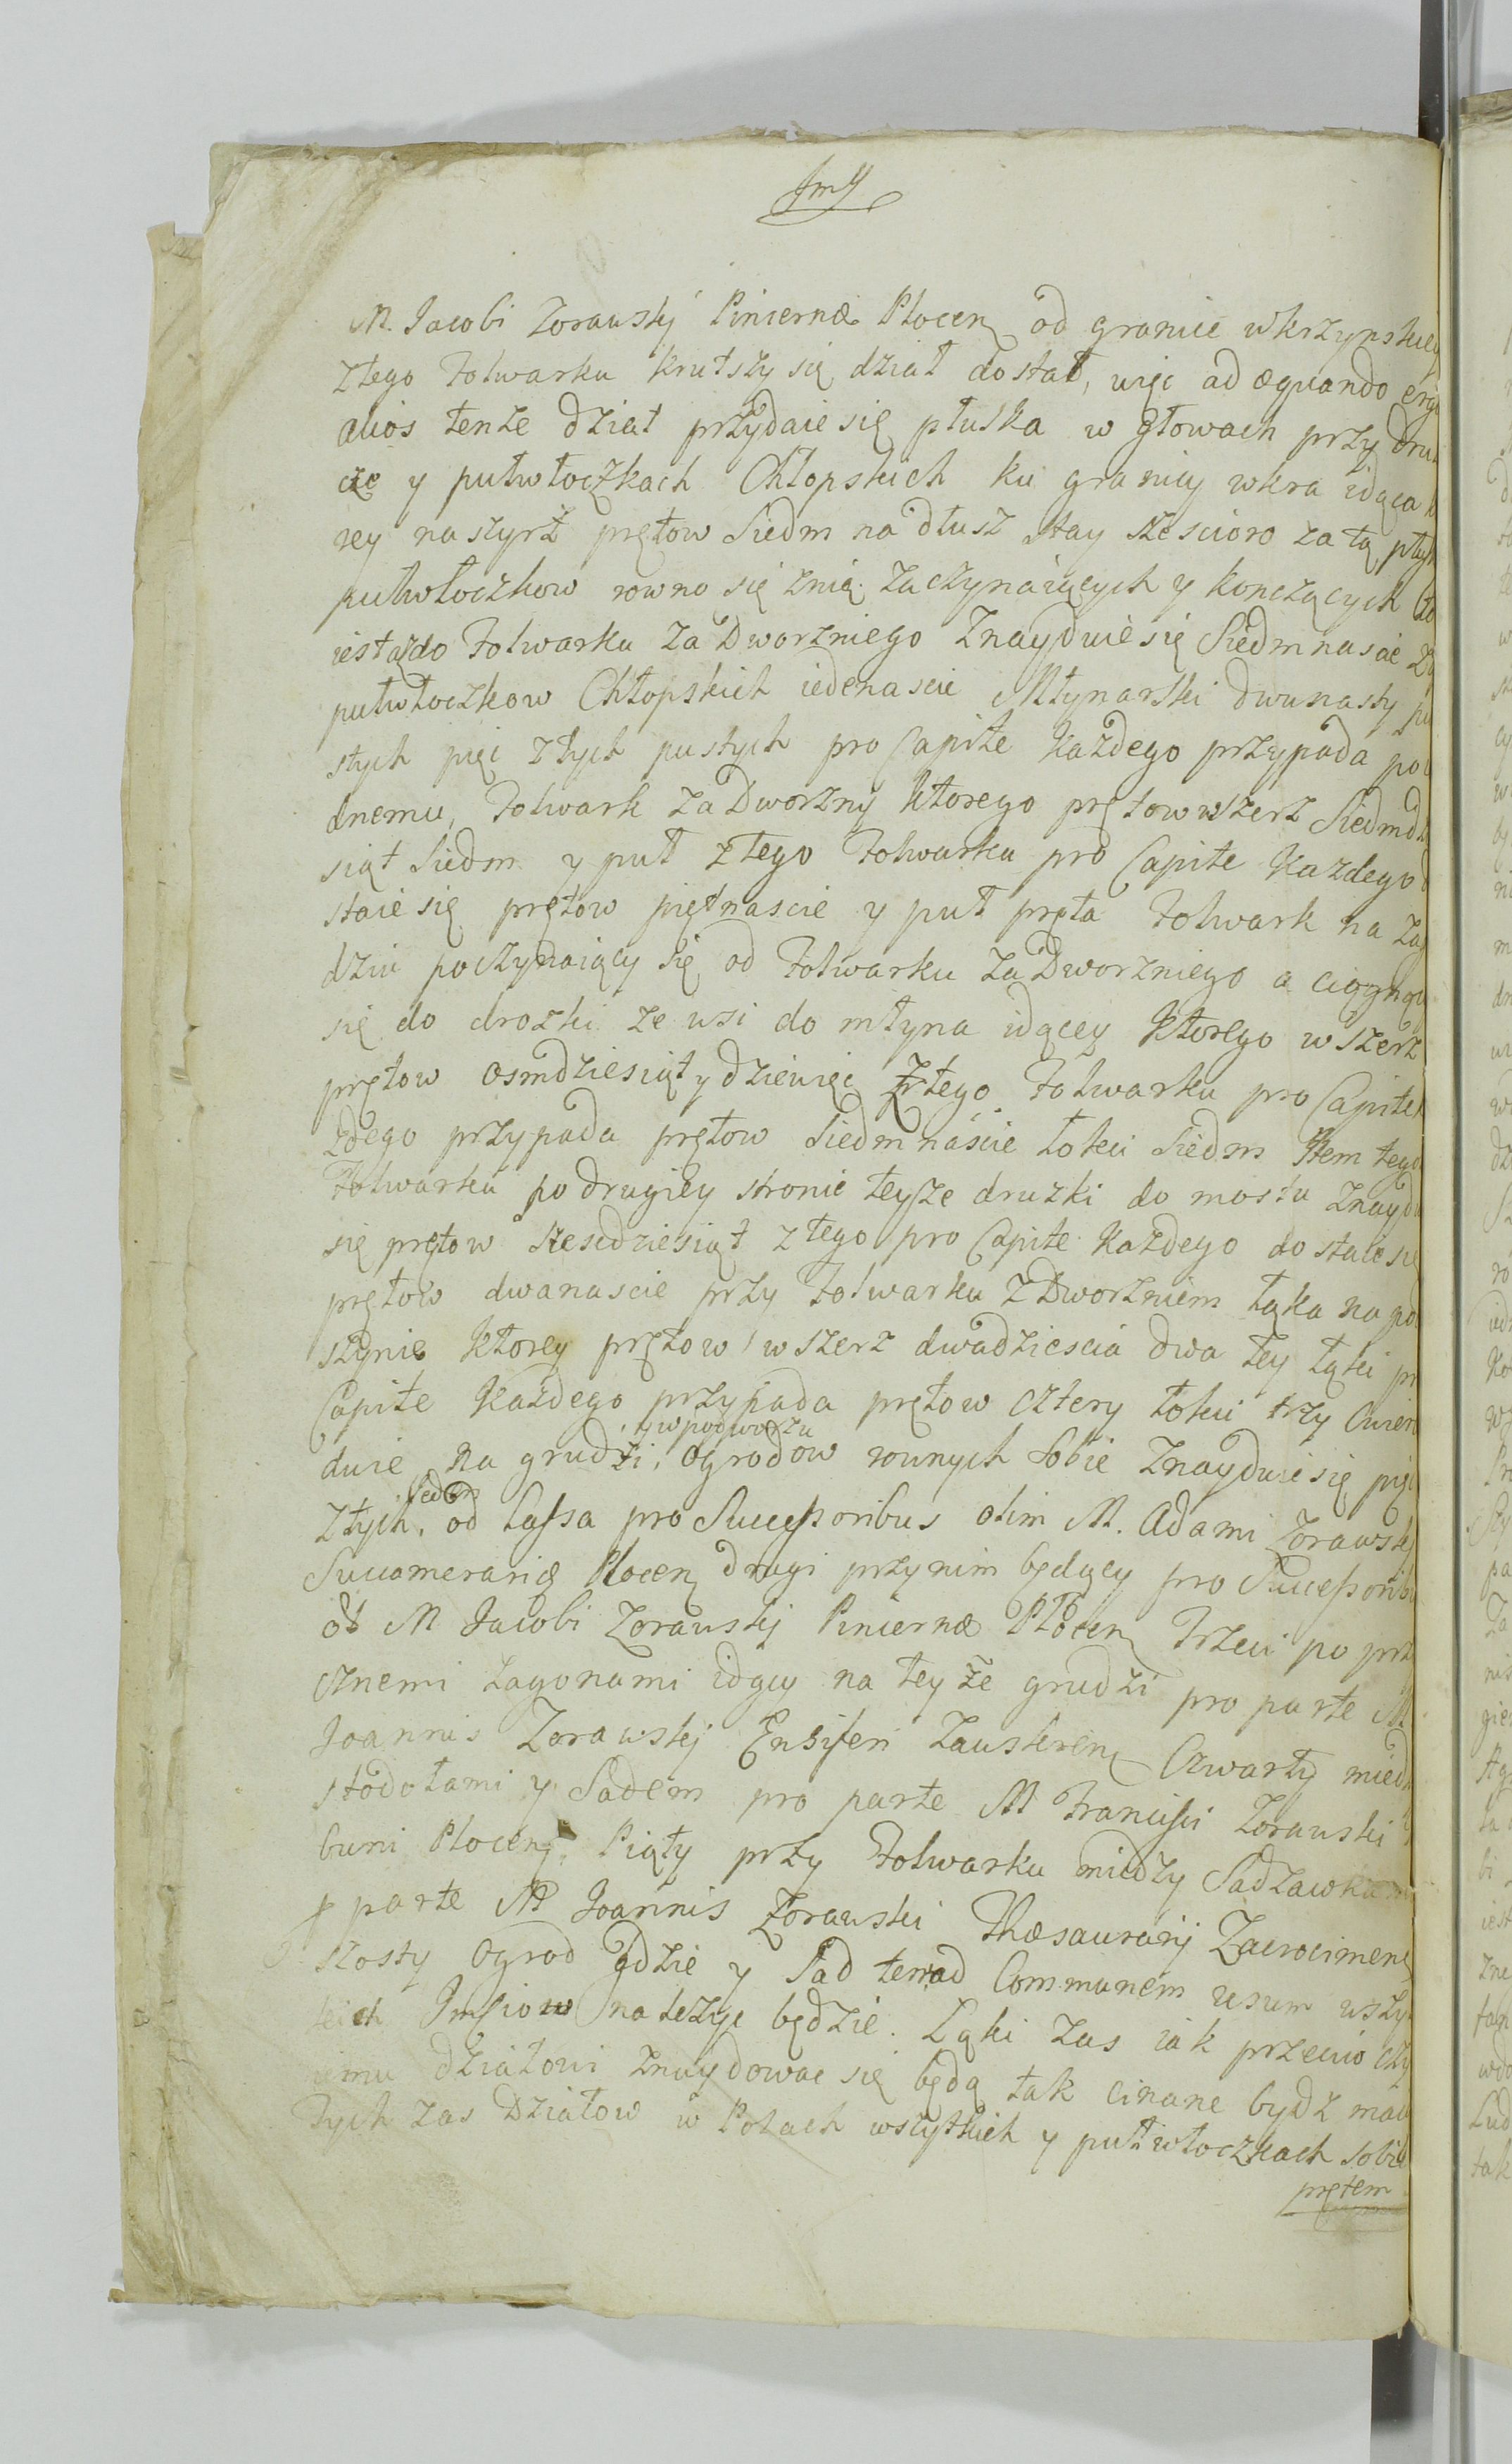 M. Jacobi Zorawskij Pincernæ Plocen od granice wkrzynskiey
ztego Folwarku krutszy się dział dostał, więc adæquando erga
alios tenze dział przydaie się płuska w głowach przy dru
cze y pułwłoczkach Chłopskich ku granicy wkra idąca
rey naszyrz prętow Siedm nadłusz stay szescioro za tą
pułwłoczkow rowno się znią zaczynaiących y konczących
iest ązdo Folwarku zaDworzniego Znayduie się Siedmnascie
pułwłoczkow Chłopskich iedenascie Młynarski dwunasty pu
stych pięc ztych pustych pro Capite każdego przypada po
dnemu, Folwark zaDworzny ktorego prętow wszerz Siedmdz
siąt Siedm y puł ztego Folwarku pro Capite Kazdego
staie się prętow piętnascie y puł pręta Folwark na Za
dziu poczynaiący się od Folwarku zaDworzniego a ciągnący
się do drozki ze wsi do młyna idącey ktorego wszerz
prętow osmdziesiąt y dziewięc ztego Folwarku pro Capite
żdego przypada prętow Siedmnáscie łokci Siedm Item tego
Folwarku po drugiey stronie teysze druzki do mostu Znaydu
się prętow szescdziesiąt ztego pro Capite każdego dostaie się
prętow dwanascie przy Folwarku ZDworzniem łąka na po
stynie ktorey prętow wszerz dwadziescia dwa tey łąki pr
Capite każdego przypada prętow cztery łokci trzy Cwier
y w podworzu
duie na grudzi, ogrodow rownych sobie Znayduie się pięc
Jeden
Ztych, od Lassa pro Successoribus olim M. Adami Zorawskij
Succamerarię Plocen drugi przynim będący pro Successorib
M Jacobi Zorawskij Pincernæ Płocen Trzeci po prze
cznemi zagonami idący na teyże grudzi pro parte M
Joannis Zorawskij Ensiferi Zauskrzen Czwarty miedzy
stodołami y Sadem pro parte M Francisci Zorawski
buni Plocen, Piąty przy Folwarku między Sadzawkami
p parte M Joannis Zorawski Thæsaurarij Zacrocimen
szosty Ogrod gdzie y Sad ten ad Communem usum wszys
kich Imsciow nalezyc będzie. Łąki zas iak przeciw czy
iemu działowi znaydowac się będą tak cinane bydz maią
Tych zas Działow w Polach wszytkich y pułwłoczkach sobie
prętem